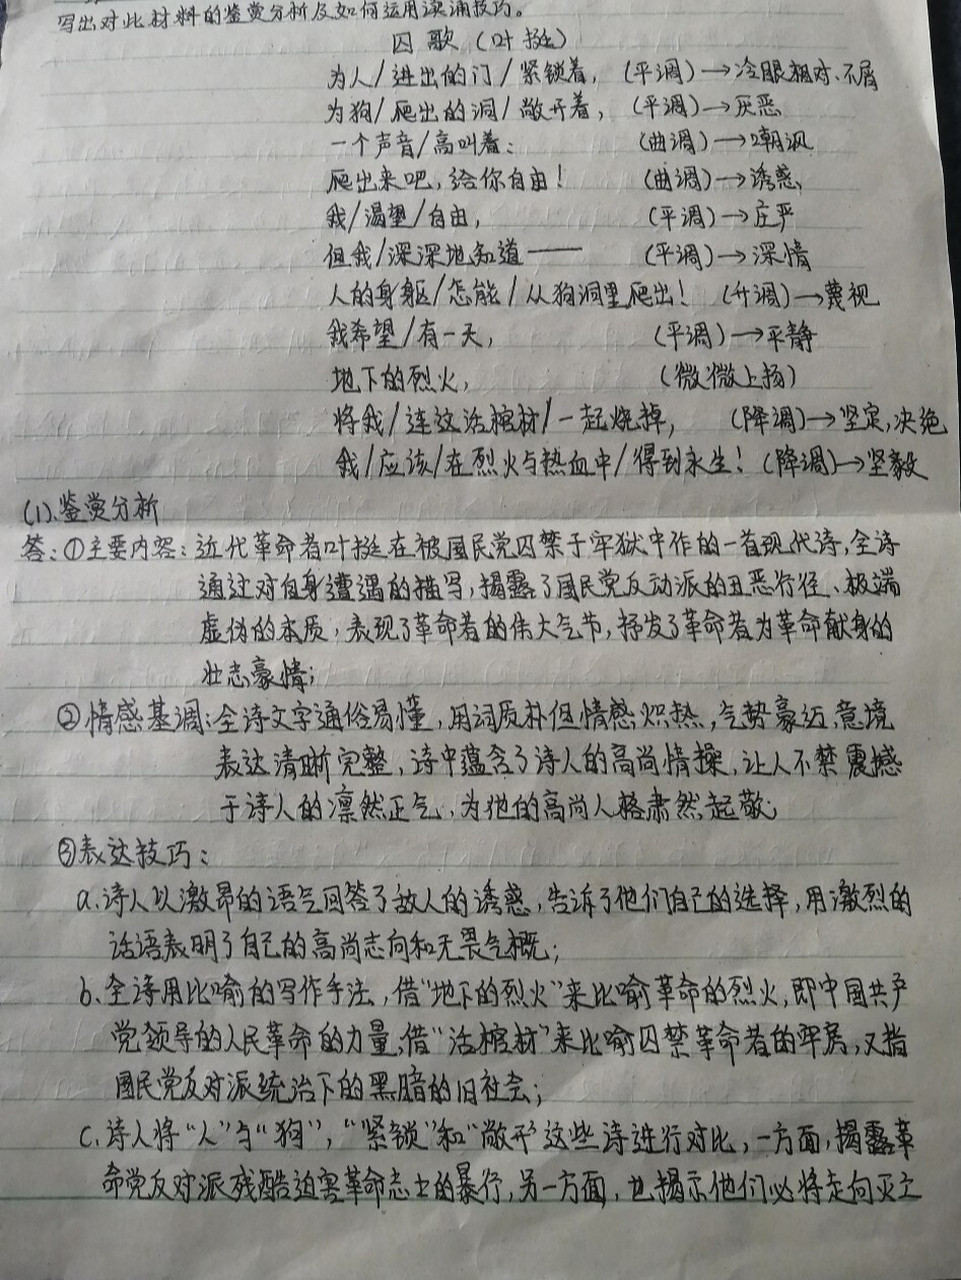 写出对此材料的鉴赏分析及如何运用读诵技巧。
囚歌（叶挺）
为人/进出的门/紧锁着，（平调）→冷眼相对、不屑
为狗/爬出的洞/敞开着，（平调）→厌恶
一个声音/高叫着：（曲调）→嘲讽
爬出来吧，给你自由！（曲调）→诱惑，
我/渴望/自由，（平调）→庄严
但我/深深地知道——（平调）→深情
人的身躯/怎能/从狗洞里爬出！（升调）→蔑视
我希望/有一天，（平调）→平静
地下的烈火，（微微上扬）
将我/连这活棺材/一起烧掉，（降调）→坚定，决绝
我/应该/在烈火与热血中/得到永生！（降调）→坚毅
(1).鉴赏分析
答：①主要内容：近代革命者叶挺在被国民党囚禁于牢狱中作的一首现代诗，全诗
通过对自身遭遇的描写，揭露了国民党反动派的丑恶行径、极端
虚伪的本质，表现了革命者的伟大气节，抒发了革命者为革命献身的
壮志豪情；
②情感基调：全诗文字通俗易懂，用词质朴但情感炽热，气势豪迈，意境
表达清晰完整，诗中蕴含了诗人的高尚情操，让人不禁震撼
于诗人的凛然正气，为他的高尚人格肃然起敬；
③表达技巧：
a.诗人以激昂的语气回答了敌人的诱惑，告诉了他们自己的选择，用激烈的
话语表明了自己的高尚志向和无畏气概；
b.全诗用比喻的写作手法，借“地下的烈火”来比喻革命的烈火，即中国共产
党领导的人民革命的力量，借“活棺材”来比喻囚禁革命者的牢房，又指
国民党反对派统治下的黑暗的旧社会；
c.诗人将“人”与“狗”，“紧锁”和“敞开”这些诗进行对比，一方面，揭露革
命党反对派残酷迫害革命志士的暴行，另一方面，也揭示他们必将走向灭亡